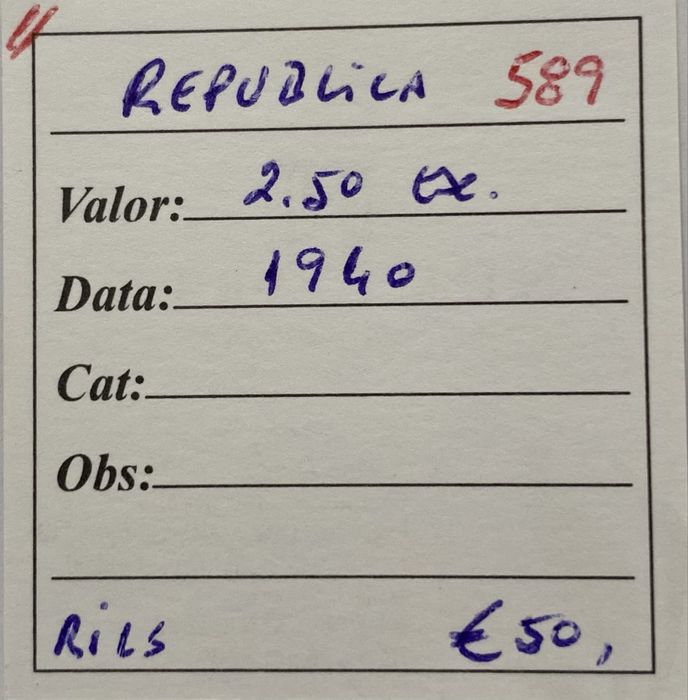 REPUBLICA 589
Valor: 2.50 ex.
Data: 1940
Cat:
Obs:
€50,